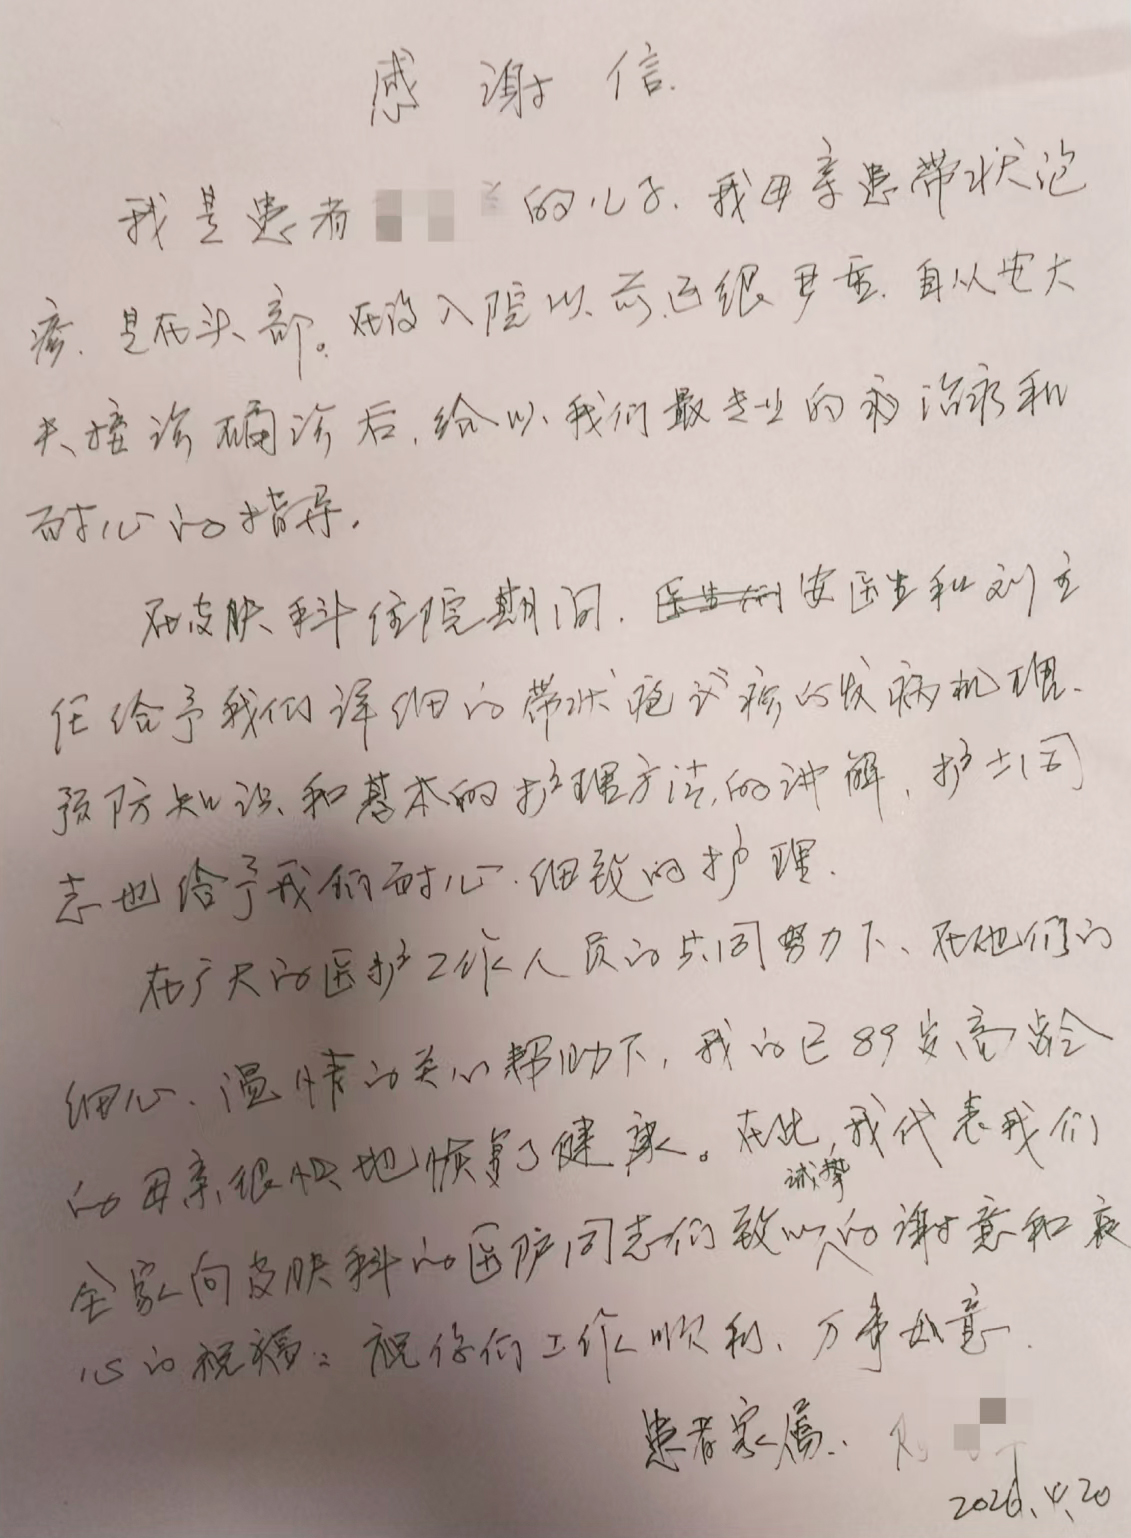 感谢信.
我是患者 的儿子.我母亲患带状疱
疹.是在头部。在没入院以前还很严重.自从安大
夫接诊确诊后,给以我们最专业的 治疗和
耐心的指导.
在皮肤科住院期间.安医生和刘主
任给予我们详细的带状疱疹的发病机理、
预防知识和基本的护理方法的讲解,护士同
志也给予我们耐心.细致的护理.
在广大的医护工作人员的共同努力下、在他们的
细心、温情的关心帮助下,我的已89岁高龄
的母亲很快地恢复了健康。在此,我代表我们
全家向皮肤科的医护同志们致以诚挚的谢意和衷
心的祝福:祝你们工作顺利、万事如意.
患者家属:
4.20